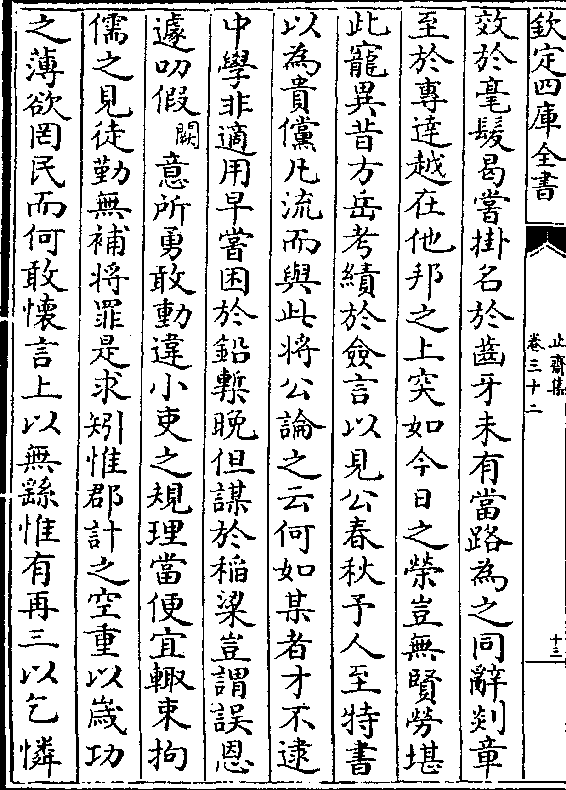 欽定四庫全書
止齋集
卷三十二
十三
效於毫髮曷嘗掛名於齒牙未有當路為之同辭剡章
至於專達越在他邦之上突如今日之榮豈無賢勞堪
此寵異昔方岳考績於僉言以見公春秋予人至特書
以為貴儻凡流而與此將公論之云何如某者才不逮
中學非適用早嘗困於鉛槧晚但謀於稻粱豈謂誤恩
遽叨假闕意所勇敢動違小吏之規理當便宜輙束拘
儒之見徒勤無補將罪是求矧惟郡計之空重以歲功
之薄欲罔民而何敢懷言上以無繇惟有再三以乞憐